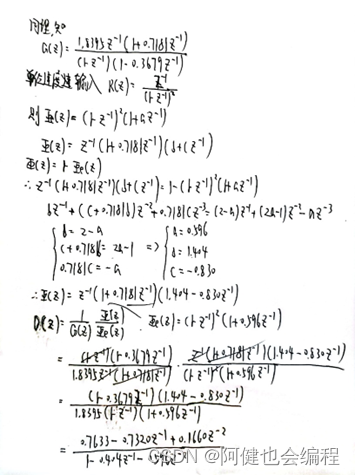 同理,知
G(z)=1.8395z⁻¹(1+0.718z⁻¹)/(1-z⁻¹)(1-0.3679z⁻¹)
单位速度输入 R(z)=z⁻¹/(1-z⁻¹)²
则Φe(z)=(1-z⁻¹)²(1+az⁻¹)
Φ(z)=z⁻¹(1+0.718z⁻¹)(b+cz⁻¹)
Φ(z)=1-Φe(z)
∴z⁻¹(1+0.718z⁻¹)(b+cz⁻¹)=1-(1-z⁻¹)²(1+az⁻¹)
bz⁻¹+(c+0.718b)z⁻²+0.718cz⁻³=(2-a)z⁻¹+(2a-1)z⁻²-az⁻³
{b=2-a {a=0.596
{c+0.718b=2a-1 => {b=1.404
{0.718c=-a {c=-0.830
∴Φ(z)=z⁻¹(1+0.718z⁻¹)(1.404-0.830z⁻¹)
D(z)=1/G(z) Φ(z)/Φe(z) Φe(z)=(1-z⁻¹)²(1+0.596z⁻¹)
=(1-z⁻¹)(1-0.3679z⁻¹)/1.8395z⁻¹(1+0.718z⁻¹)·z⁻¹(1+0.718z⁻¹)(1.404-0.830z⁻¹)/(1-z⁻¹)²(1+0.596z⁻¹)
=(1-0.3679z⁻¹)(1.404-0.830z⁻¹)/1.8395(1-z⁻¹)(1+0.596z⁻¹)
=0.7633-0.7320z⁻¹+0.1660z⁻²/1-0.404z⁻¹-0.596z⁻²
CSDN @阿健也会编程